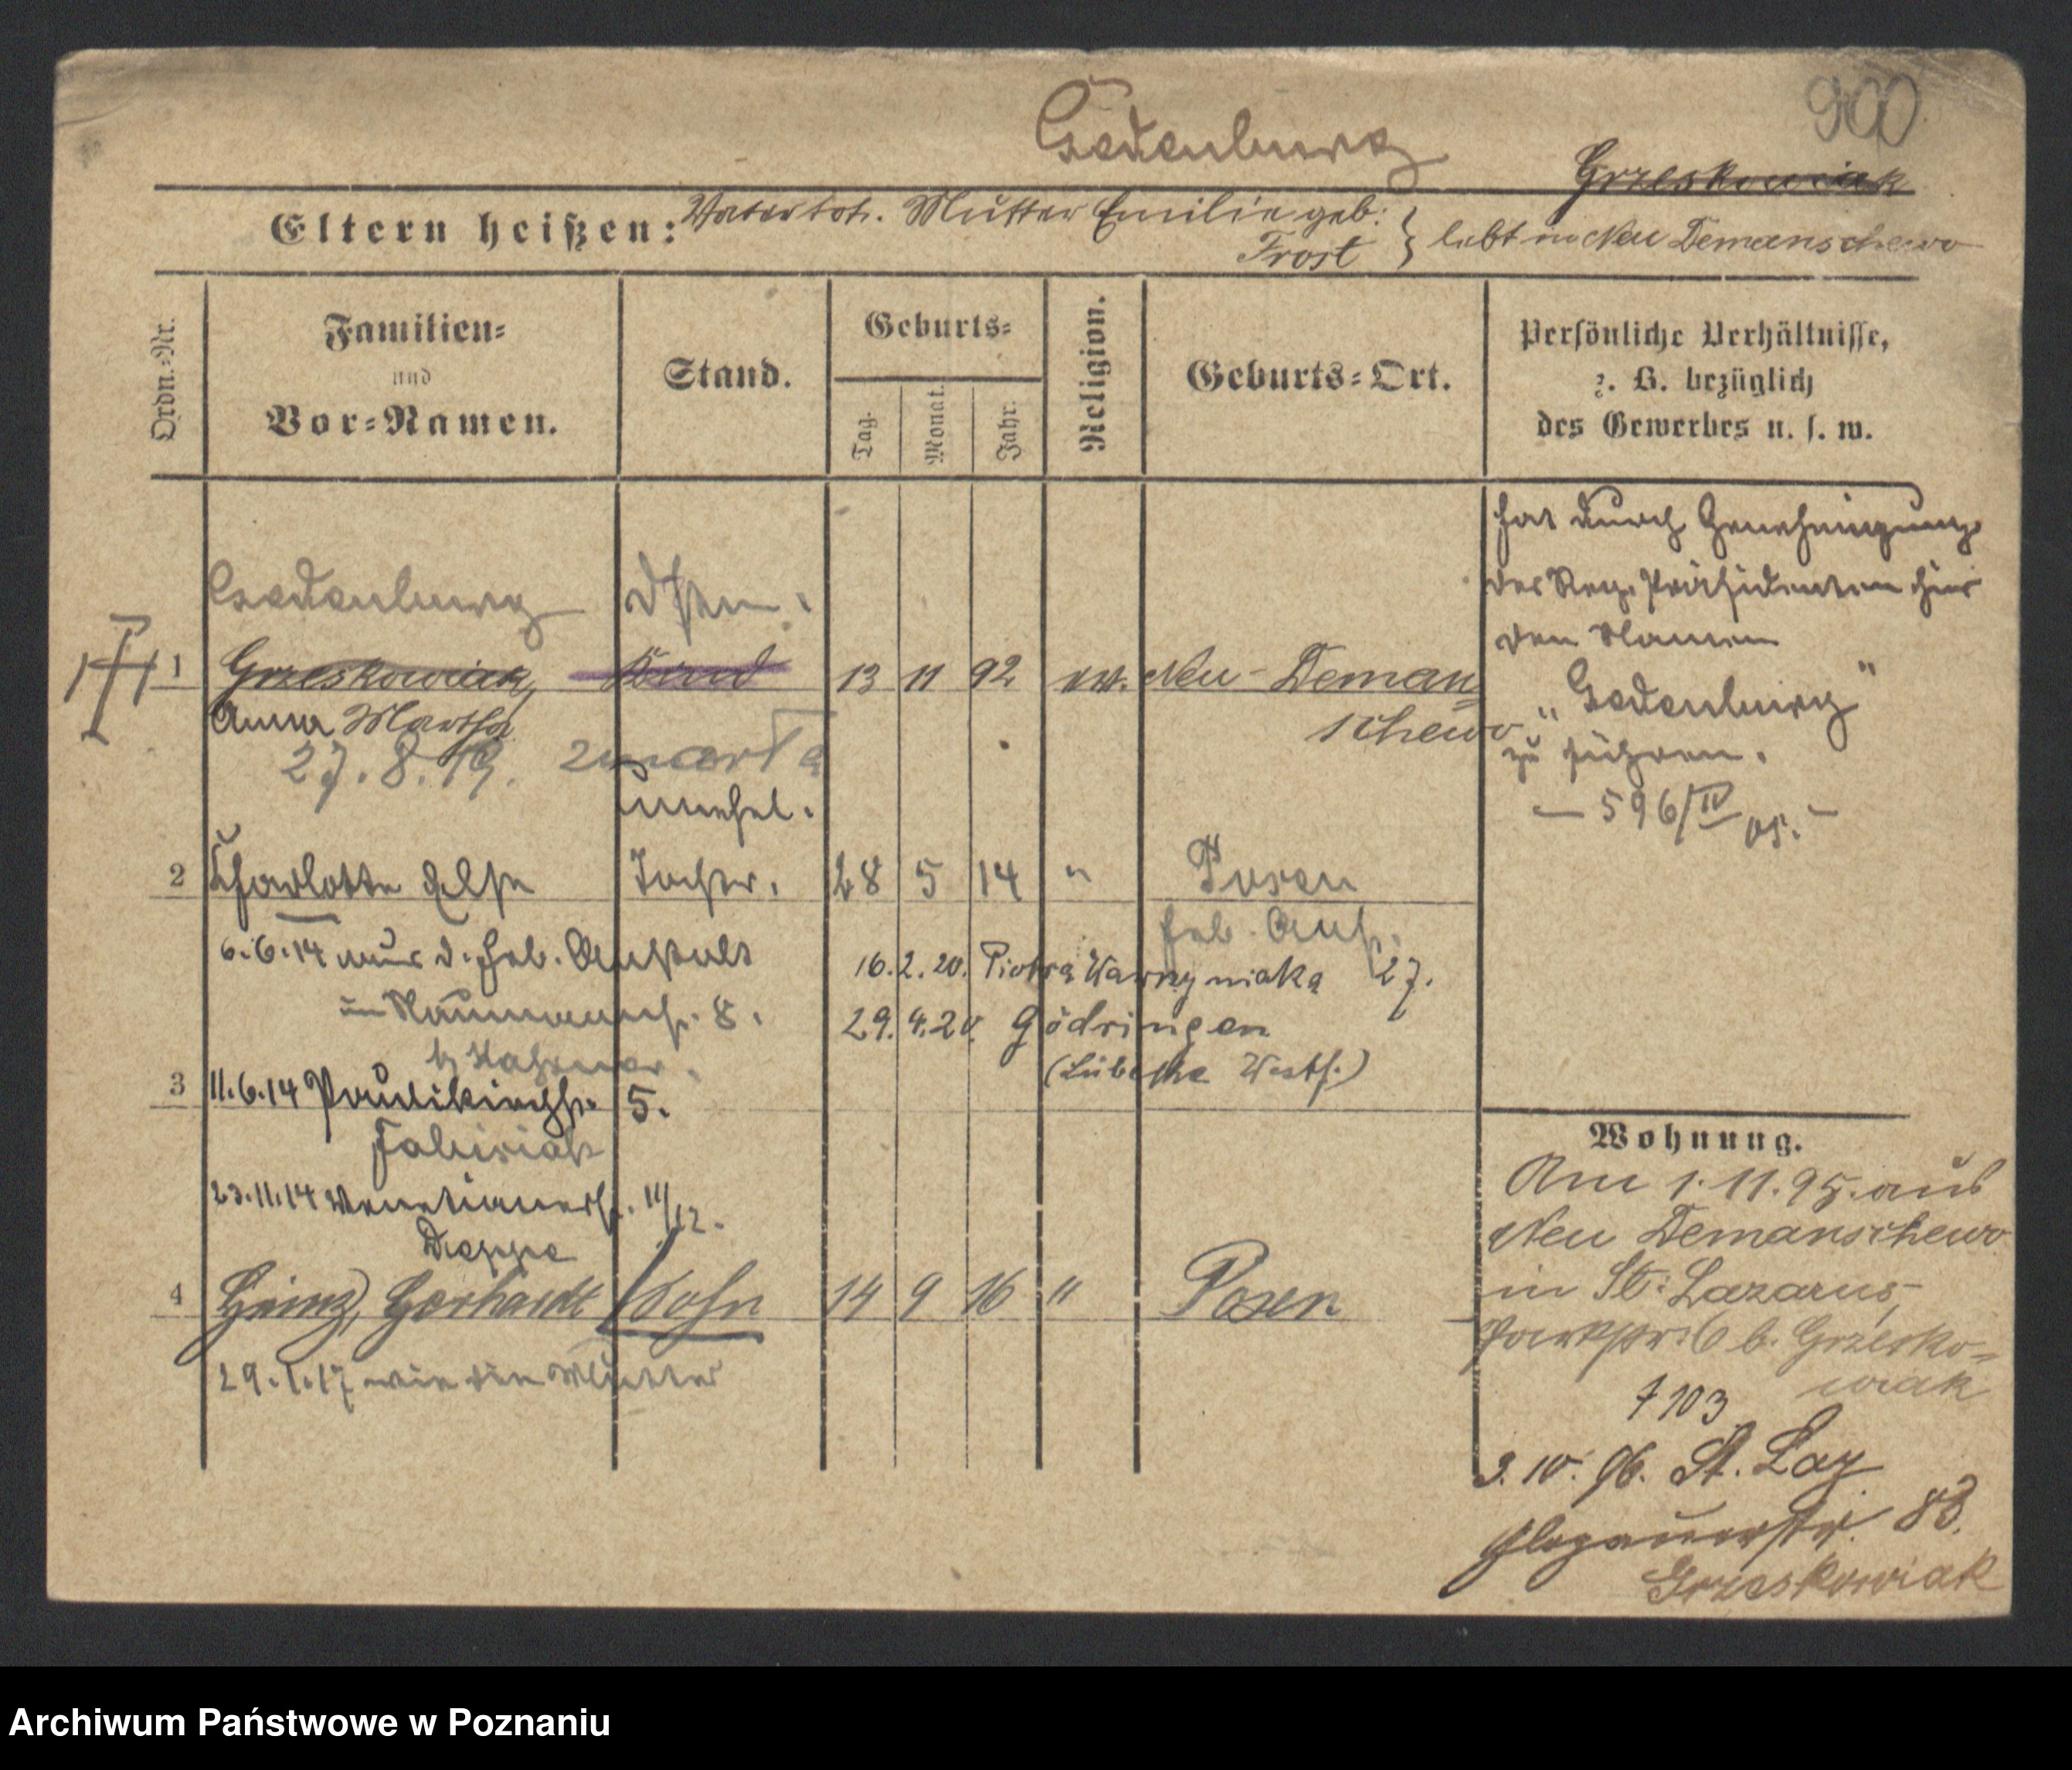 Gedenburg
900
Grzeskowiak
Eltern heißen: Vater tot. Mutter Emilie geb: Frost } lebt in Neu Demanschewo
Ordn.-Nr.
Familien-
und
Vor-Namen.
Stand.
Geburts-
Tag.
Monat.
Jahr.
Religion.
Geburts-Ort.
Persönliche Verhältnisse,
z. B. bezüglich
des Gewerbes u. s. w.
hat durch Genehmigung
des Reg. Präsidenten hier
den Namen
„Gedenburg"
zu führen.
— 596/IV 08. —
Gedenburg
1 Grzeskowiak, Kind 13 11 92 ev. Neu-Deman=
schewo
Anna Martha
27.8.19. zmarła
unehel.
2 Charlotte Else Tochter. 28 5 14 " Posen
Heb. Anst.
6.6.14 aus d. Heb. Anstalt
in Naumannstr. 8.
16.2.20. Piotra Wawrzyniaka 27.
29.4.20. Gödringen
(Lübecke Westf.)
3 11.6.14 Paulikirchstr. 5.
23.11.14 Venetianerstr. 11/12.
Deppe
4 Heinz, Gerhardt Sohn 14 9 16 " Posen
29.1.17 wie die Mutter
Wohnung.
Am 1.11.95. aus
Neu Demanschewo
in St. Lazarus,
Parkstr. 6 b. Grzesko=
wiak
7103
3.10.96. St. Laz
Glogauerstr. 83.
Grzeskowiak
Archiwum Państwowe w Poznaniu